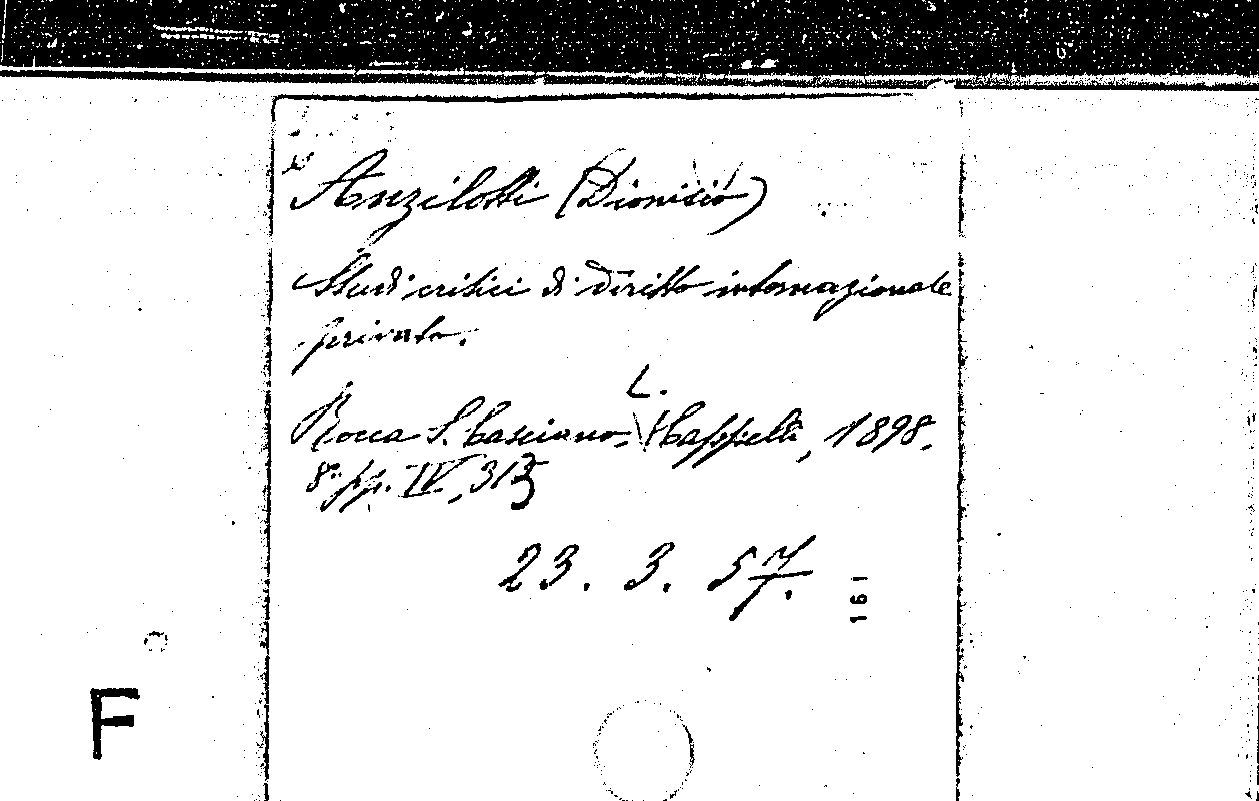 Anzilotti (Dionisio)
Studi critici di diritto internazionale
privato.
L.
Rocca S. Casciano, Cappelli, 1898.
8° pp. IV, 315
23. 3. 57.
161
F